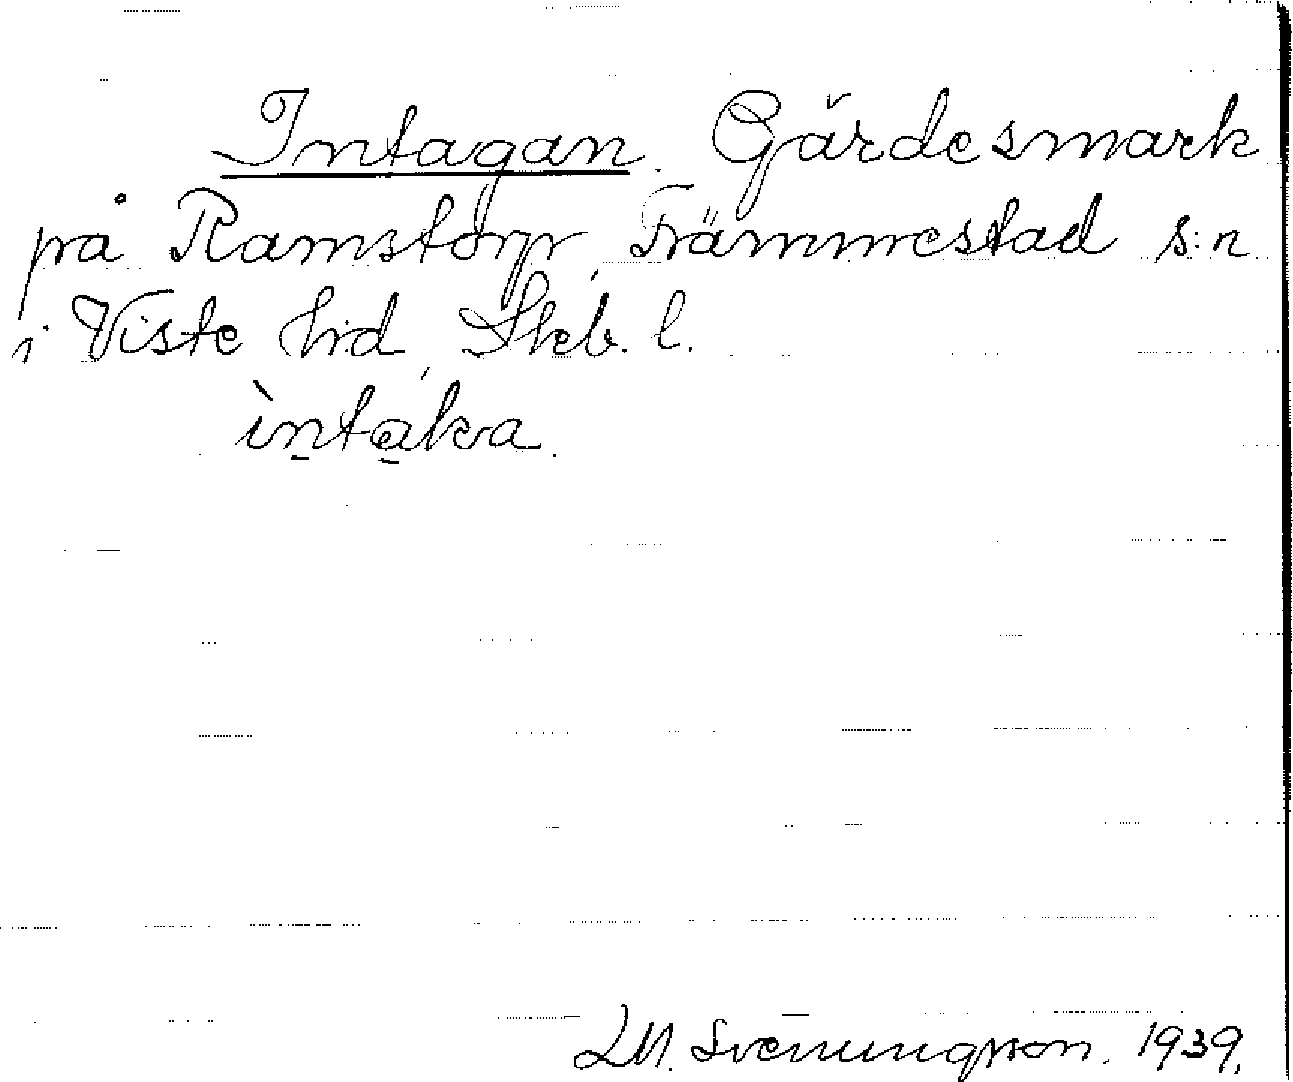 Intagan. Gärdesmark
på Ramstorp, Främmestad s:n
i Viste hd, Skb. l.
ìntaka.
L M. Svenungsson. 1939.